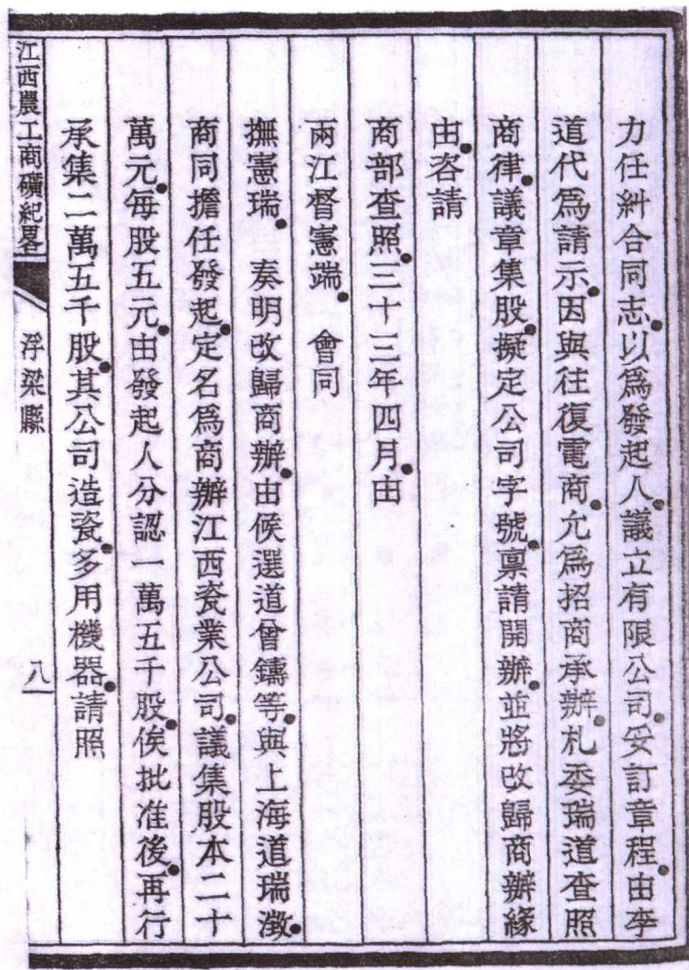 力任糾合同志以爲發起人議立有限公司妥訂章程由李
道代爲請示因與往復電商允爲招商承辦札委瑞道查照
商律議章集股擬定公司字號禀請開辦並將改歸商辦緣
由咨請
商部查照三十三年四月由
兩江督憲端　會同
撫憲瑞　奏明改歸商辦由候選道曾鑄等與上海道瑞澂
商同擔任發起定名爲商辦江西瓷業公司議集股本二十
萬元每股五元由發起人分認一萬五千股俟批准後再行
承集二萬五千股其公司造瓷多用機器請照
江西農工商礦紀畧　浮梁縣　八